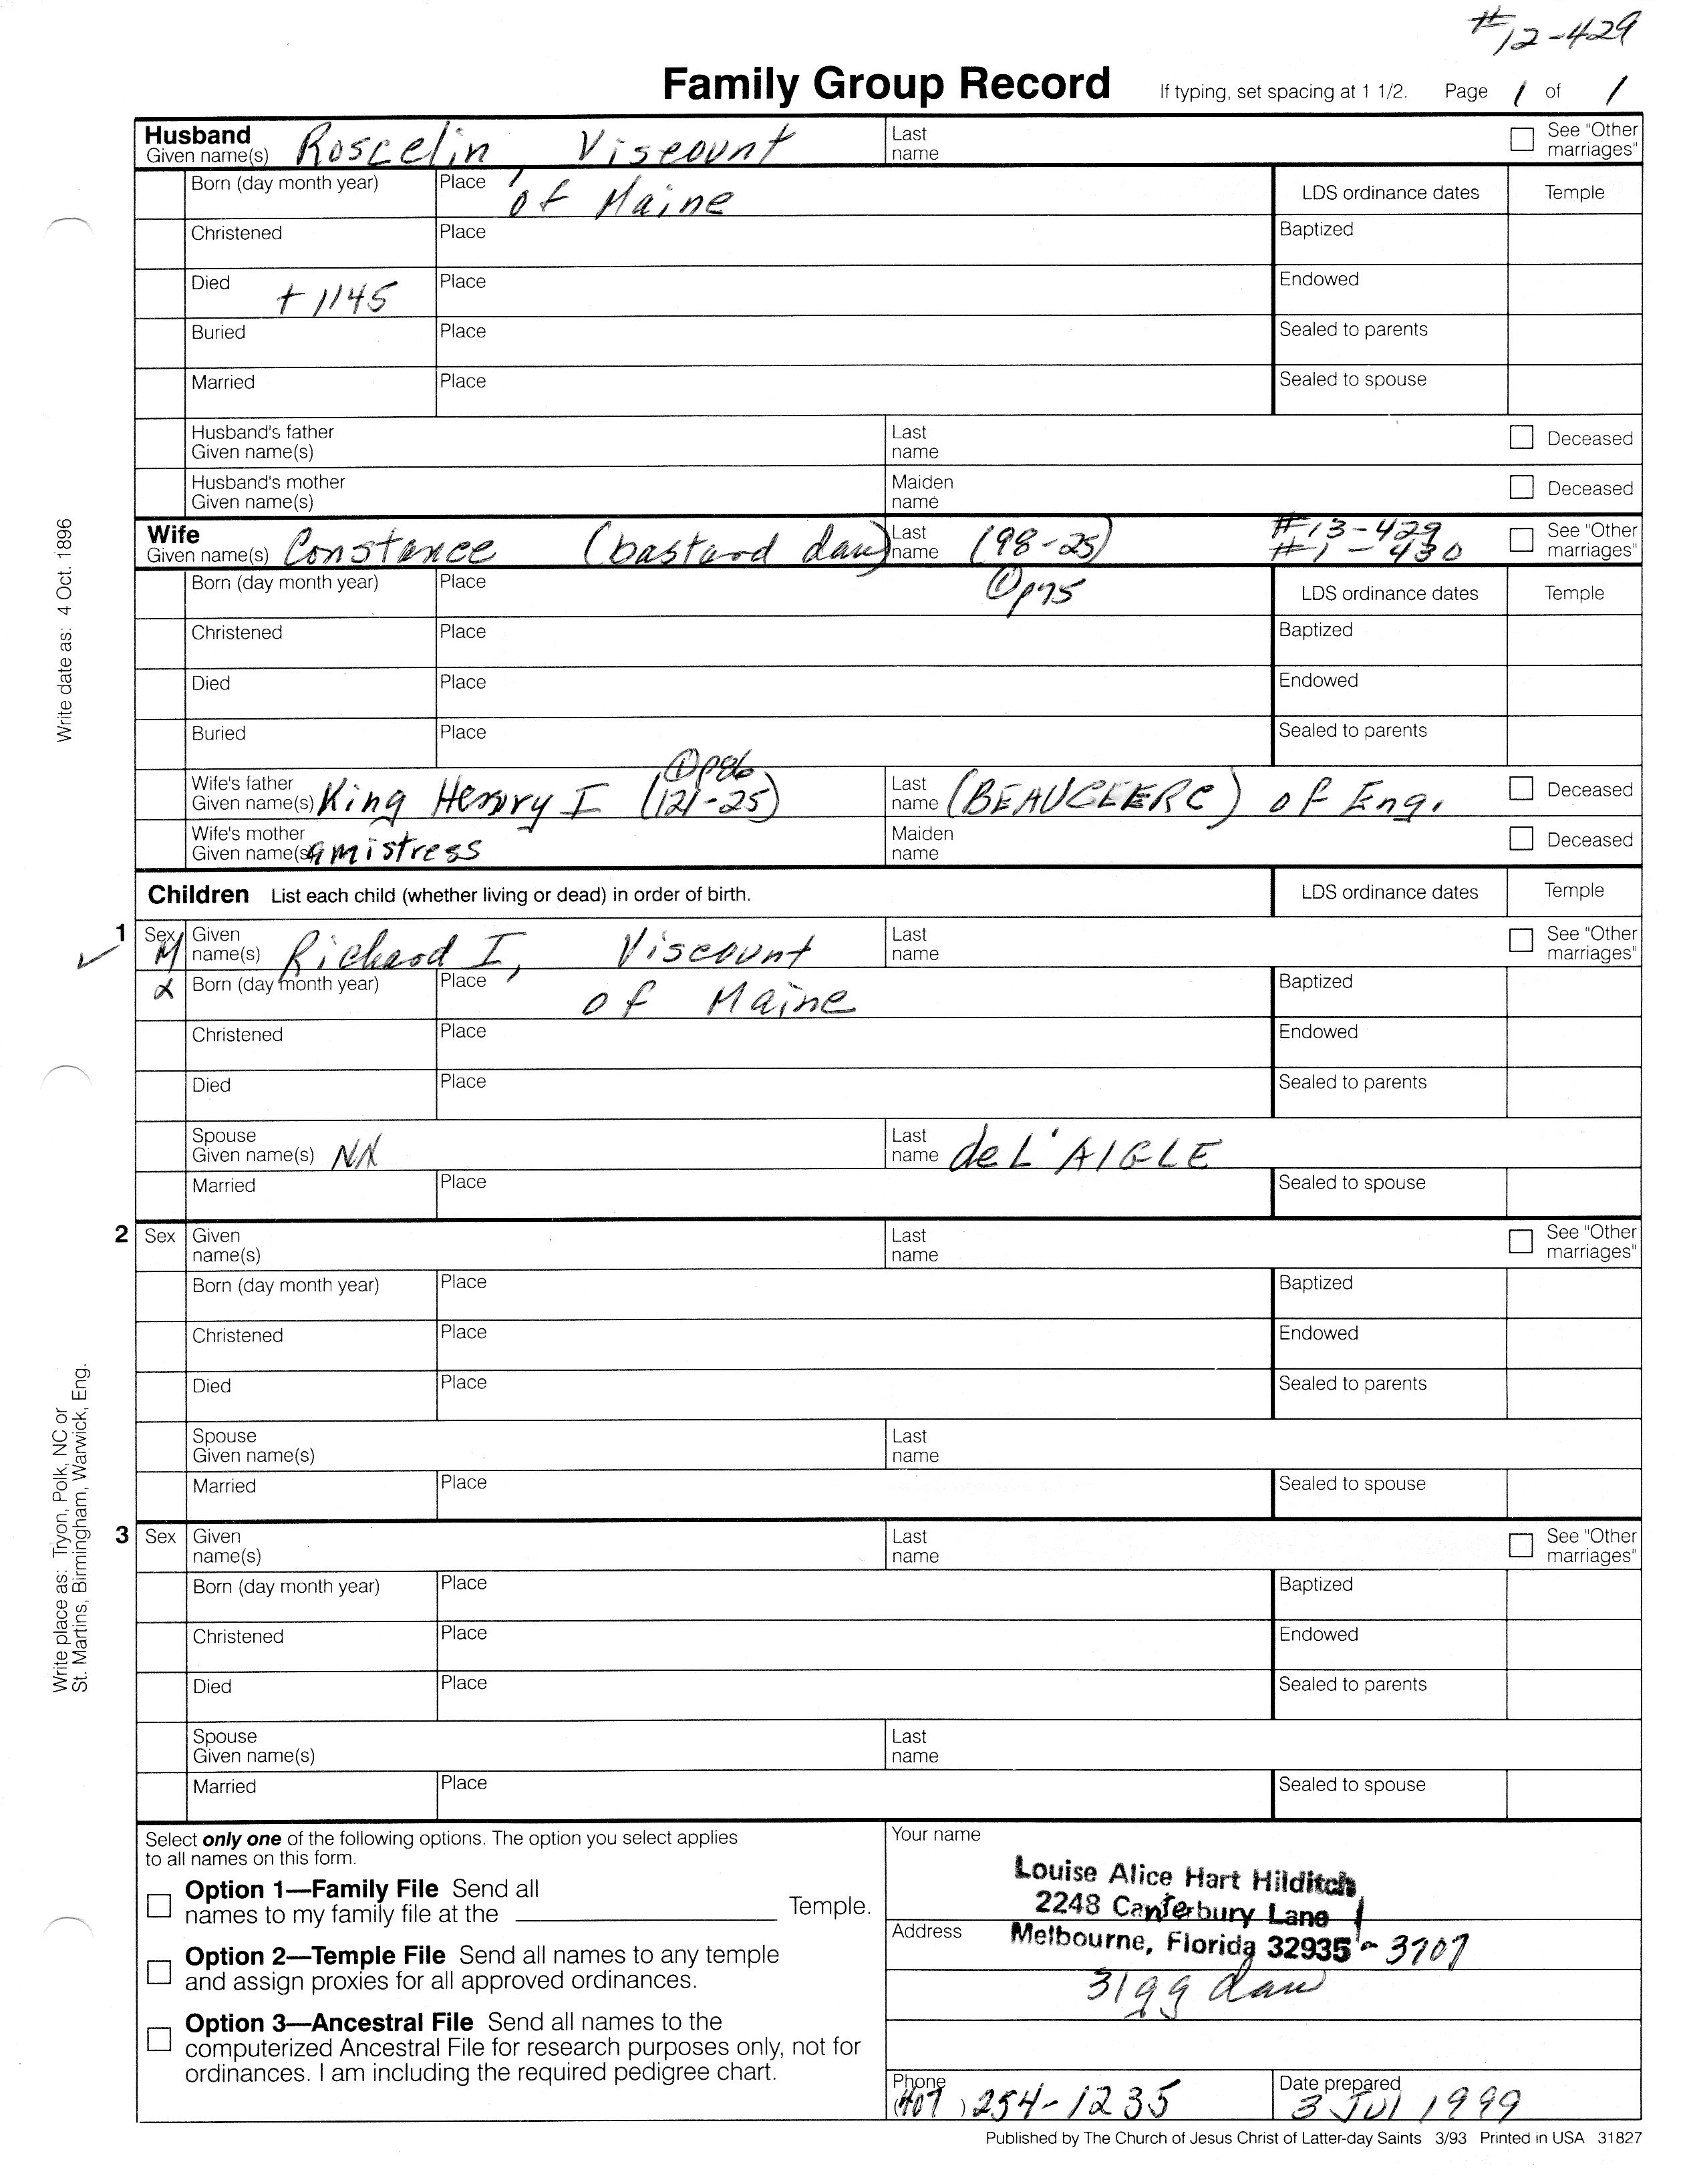 #12-429
Family Group Record If typing, set spacing at 1 1/2. Page 1 of 1
Husband Given name(s) Roscelin, Viscount Last name See "Other marriages"
Born (day month year) Place of Maine LDS ordinance dates Temple
Christened Place Baptized
Died + 1145 Place Endowed
Buried Place Sealed to parents
Married Place Sealed to spouse
Husband's father Given name(s) Last name Deceased
Husband's mother Given name(s) Maiden name Deceased
Wife Given name(s) Constance (bastard dau) Last name (98-25) #13-429 #1-430 See "Other marriages"
Born (day month year) Place ① p75 LDS ordinance dates Temple
Christened Place Baptized
Died Place Endowed
Buried Place Sealed to parents
① p86
Wife's father Given name(s) King Henry I (121-25) Last name (BEAUCLERC) of Eng. Deceased
Wife's mother Given name(s) a mistress Maiden name Deceased
Children List each child (whether living or dead) in order of birth. LDS ordinance dates Temple
1 Sex M Given name(s) Richard I, Viscount Last name See "Other marriages"
Born (day month year) Place of Maine Baptized
Christened Place Endowed
Died Place Sealed to parents
Spouse Given name(s) NN Last name de L'AIGLE
Married Place Sealed to spouse
2 Sex Given name(s) Last name See "Other marriages"
Born (day month year) Place Baptized
Christened Place Endowed
Died Place Sealed to parents
Spouse Given name(s) Last name
Married Place Sealed to spouse
3 Sex Given name(s) Last name See "Other marriages"
Born (day month year) Place Baptized
Christened Place Endowed
Died Place Sealed to parents
Spouse Given name(s) Last name
Married Place Sealed to spouse
Select only one of the following options. The option you select applies
to all names on this form.
Option 1—Family File Send all
names to my family file at the Temple.
Option 2—Temple File Send all names to any temple
and assign proxies for all approved ordinances.
Option 3—Ancestral File Send all names to the
computerized Ancestral File for research purposes only, not for
ordinances. I am including the required pedigree chart.
Your name
Louise Alice Hart Hilditch
2248 Canterbury Lane
Address Melbourne, Florida 32935 - 3707
31 gg dau
Phone (407) 254-1235 Date prepared 3 Jul 1999
Published by The Church of Jesus Christ of Latter-day Saints 3/93 Printed in USA 31827
Write date as: 4 Oct. 1896
Write place as: Tryon, Polk, NC or
St. Martins, Birmingham, Warwick, Eng.